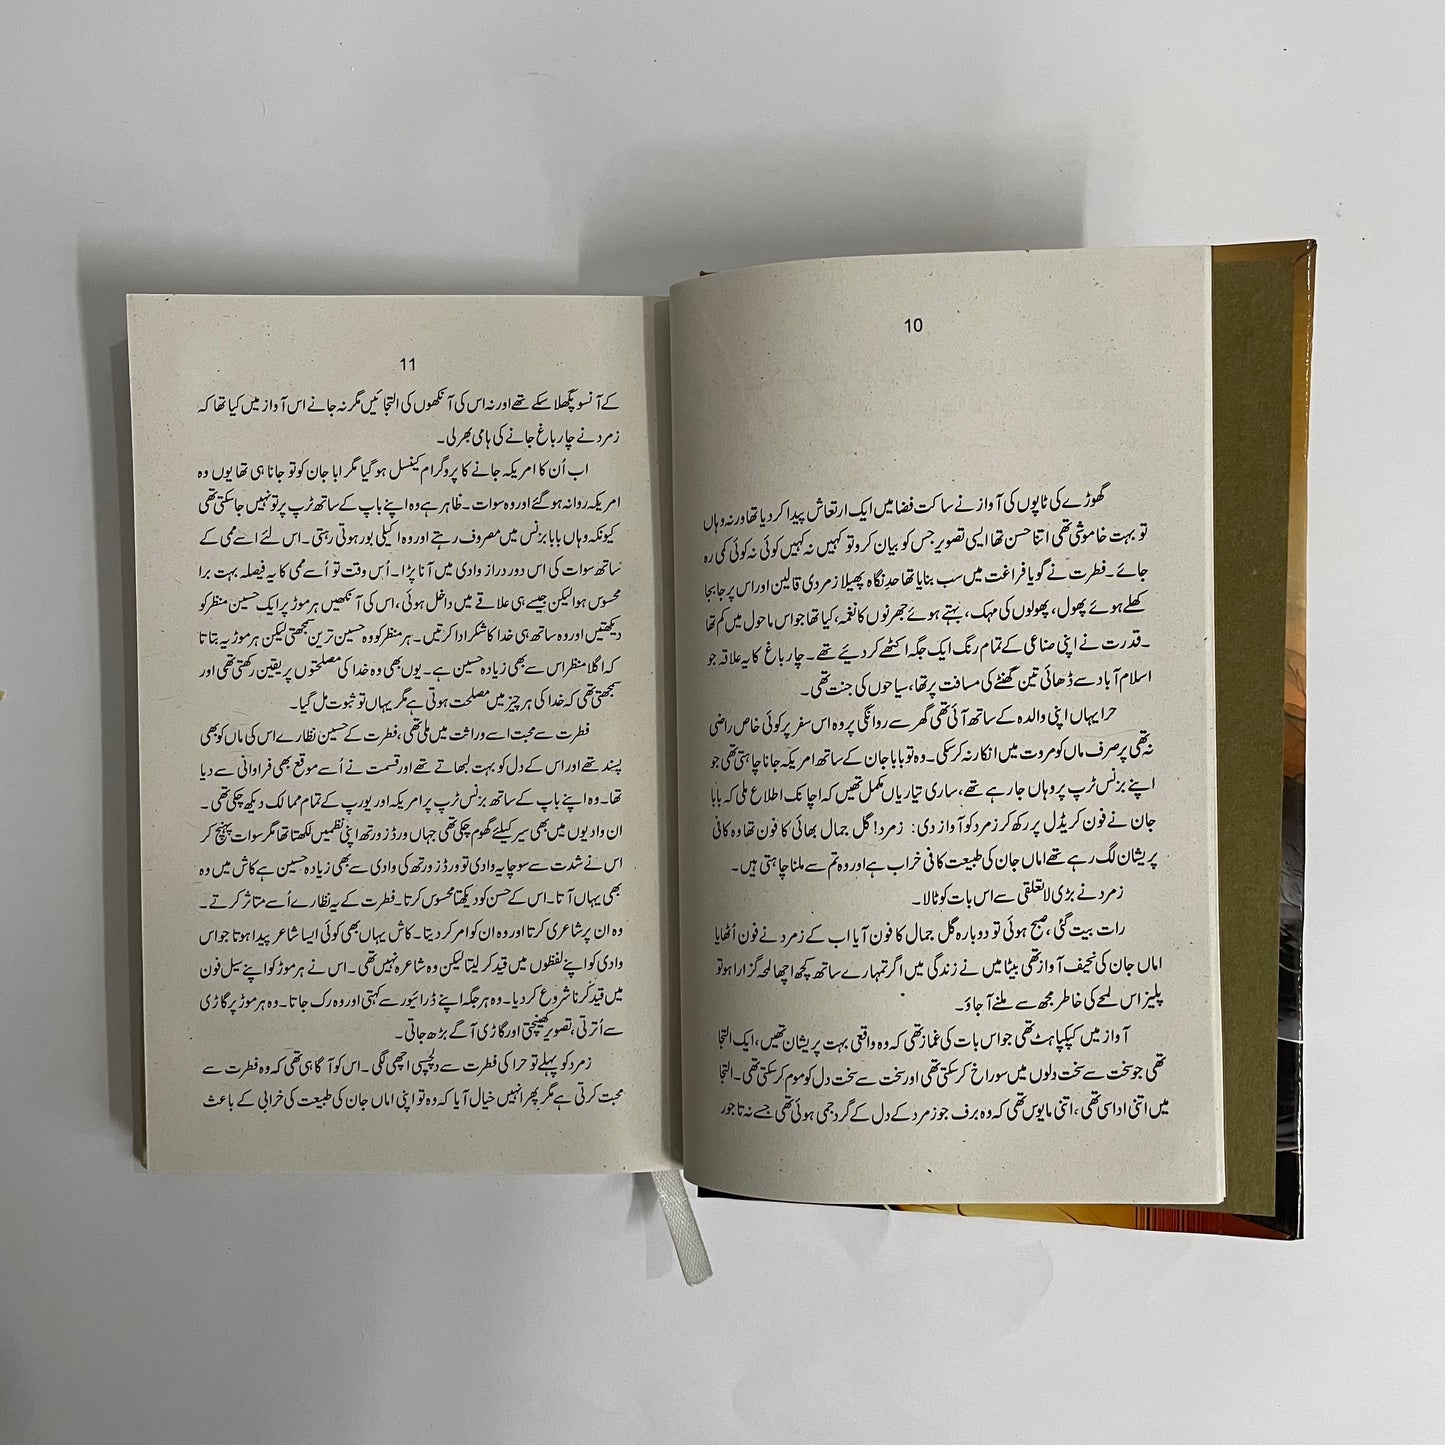 10
گھوڑے کی ٹاپوں کی آواز نے ساکت فضا میں ایک ارتعاش پیدا کر دیا تھا ورنہ وہاں
تو بہت خاموشی تھی اتنا حسن تھا ایسی تصویر جس کو بیان کرو تو کہیں نہ کہیں کوئی نہ کوئی کمی رہ
جائے۔ فطرت نے گویا فراغت میں سب بنایا تھا حدِ نگاہ پھیلا زمردی قالین اور اس پر جابجا
کھلے ہوئے پھول، پھولوں کی مہک، بہتے ہوئے جھرنوں کا نغمہ، کیا تھا جو اس ماحول میں کم تھا
۔ قدرت نے اپنی صناعی کے تمام رنگ ایک جگہ اکٹھے کر دیئے تھے۔ چار باغ کا یہ علاقہ جو
اسلام آباد سے ڈھائی تین گھنٹے کی مسافت پر تھا، سیاحوں کی جنت تھی۔
حرا یہاں اپنی والدہ کے ساتھ آئی تھی گھر سے روانگی پر وہ اس سفر پر کوئی خاص راضی
نہ تھی پر صرف ماں کو مروت میں انکار نہ کر سکی۔ وہ تو بابا جان کے ساتھ امریکہ جانا چاہتی تھی جو
اپنے بزنس ٹرپ پر وہاں جا رہے تھے، ساری تیاریاں مکمل تھیں کہ اچانک اطلاع ملی کہ بابا
جان نے فون کریڈل پر رکھ کر زمرد کو آواز دی: زمرد! گل جمال بھائی کا فون تھا وہ کافی
پریشان لگ رہے تھے اماں جان کی طبیعت کافی خراب ہے اور وہ تم سے ملنا چاہتی ہیں۔
زمرد نے بڑی لا تعلقی سے اس بات کو ٹالا۔
رات بیت گئی، صبح ہوئی تو دوبارہ گل جمال کا فون آیا اب کے زمرد نے فون اُٹھایا
اماں جان کی نحیف آواز تھی بیٹا میں نے زندگی میں اگر تمہارے ساتھ کچھ اچھا لمحہ گزارا ہو تو
پلیز اس لمحے کی خاطر مجھ سے ملنے آ جاؤ۔
آواز میں کپکپاہٹ تھی جو اس بات کی غماز تھی کہ وہ واقعی بہت پریشان تھیں، ایک التجا
تھی جو سخت سے سخت دلوں میں سوراخ کر سکتی تھی اور سخت سے سخت دل کو موم کر سکتی تھی۔ التجا
میں اتنی اداسی تھی، اتنی مایوس تھی کہ وہ برف جو زمرد کے دل کے گرد جمی ہوئی تھی جسے نہ تاجور
11
کے آنسو پگھلا سکے تھے اور نہ اس کی آنکھوں کی التجائیں مگر نہ جانے اس آواز میں کیا تھا کہ
زمرد نے چار باغ جانے کی ہامی بھر لی۔
اب اُن کا امریکہ جانے کا پروگرام کینسل ہو گیا مگر ابا جان کو تو جانا ہی تھا یوں وہ
امریکہ روانہ ہو گئے اور وہ سوات۔ ظاہر ہے وہ اپنے باپ کے ساتھ ٹرپ پر تو نہیں جا سکتی تھی
کیونکہ وہاں بابا بزنس میں مصروف رہتے اور وہ اکیلی بور ہوتی رہتی۔ اس لئے اسے ممی کے
ساتھ سوات کی اس دور دراز وادی میں آنا پڑا۔ اُس وقت تو اُسے ممی کا یہ فیصلہ بہت برا
محسوس ہوا لیکن جیسے ہی علاقے میں داخل ہوئی، اس کی آنکھیں ہر موڑ پر ایک حسین منظر کو
دیکھتیں اور وہ ساتھ ہی خدا کا شکر ادا کرتیں۔ ہر منظر کو وہ حسین ترین سمجھتی لیکن ہر موڑ یہ بتاتا
کہ اگلا منظر اس سے بھی زیادہ حسین ہے۔ یوں بھی وہ خدا کی مصلحتوں پر یقین رکھتی تھی اور
سمجھتی تھی کہ خدا کی ہر چیز میں مصلحت ہوتی ہے مگر یہاں تو ثبوت مل گیا۔
فطرت سے محبت اسے وراثت میں ملی تھی، فطرت کے حسین نظارے اس کی ماں کو بھی
پسند تھے اور اس کے دل کو بہت لبھاتے تھے اور قسمت نے اُسے موقع بھی فراوانی سے دیا
تھا۔ وہ اپنے باپ کے ساتھ بزنس ٹرپ پر امریکہ اور یورپ کے تمام ممالک دیکھ چکی تھی۔
ان وادیوں میں بھی سیر کیلئے گھوم چکی تھی جہاں ورڈز ورتھ اپنی نظمیں لکھتا تھا مگر سوات پہنچ کر
اس نے شدت سے سوچا یہ وادی تو ورڈز ورتھ کی وادی سے بھی زیادہ حسین ہے کاش میں وہ
بھی یہاں آتا۔ اس کے حسن کو دیکھتا محسوس کرتا۔ فطرت کے یہ نظارے اُسے متاثر کرتے۔
وہ ان پر شاعری کرتا اور وہ ان کو امر کر دیتا۔ کاش یہاں بھی کوئی ایسا شاعر پیدا ہوتا جو اس
وادی کو اپنے لفظوں میں قید کر لیتا لیکن وہ شاعرہ نہیں تھی۔ اس نے ہر موڑ کو اپنے سیل فون
میں قید کرنا شروع کر دیا۔ وہ ہر جگہ اپنے ڈرائیور سے کہتی اور وہ رک جاتا۔ وہ ہر موڑ پر گاڑی
سے اُترتی، تصویر کھینچتی اور گاڑی آگے بڑھ جاتی۔
زمرد کو پہلے تو حرا کی فطرت سے دلچسپی اچھی لگی۔ اس کو آگاہی تھی کہ وہ فطرت سے
محبت کرتی ہے مگر پھر انہیں خیال آیا کہ وہ تو اپنی اماں جان کی طبیعت کی خرابی کے باعث